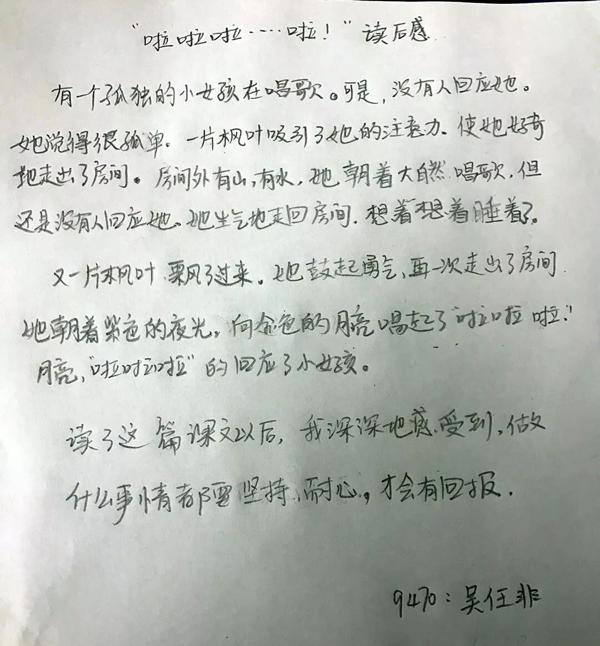 “啦啦啦……啦！”读后感
有一个孤独的小女孩在唱歌。可是，没有人回应她。
她觉得很孤单。一片枫叶吸引了她的注意力，使她好奇
地走出了房间。房间外有山，有水，她朝着大自然唱歌，但
还是没有人回应她。她生气地走回房间，想着想着睡着了。
又一片枫叶飘了过来，她鼓起勇气，再一次走出了房间
她朝着紫色的夜光，向金色的月亮唱起了“啦啦啦！”
月亮，“啦啦啦”的回应了小女孩。
读了这篇课文以后，我深深地感受到，做
什么事情都要坚持，耐心，才会有回报．
9470：吴任非